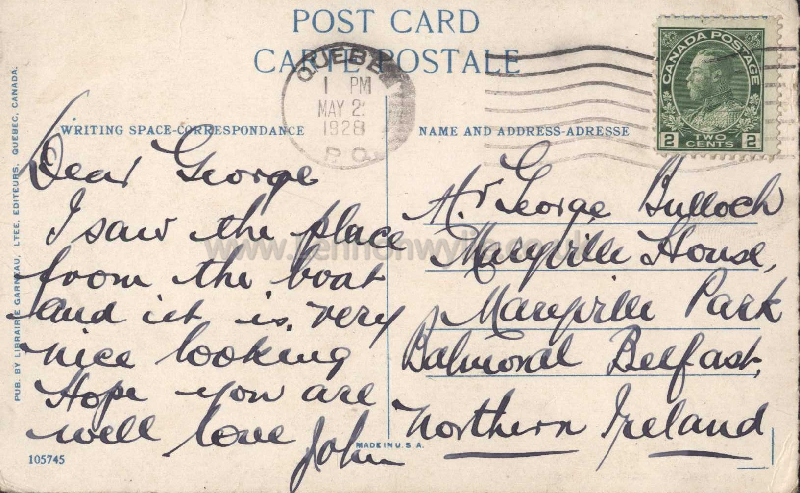 POST CARD
CARTE POSTALE
QUEBEC
1 PM
MAY 2
1928
P.Q.
CANADA POSTAGE
2 TWO CENTS 2
WRITING SPACE-CORRESPONDANCE
NAME AND ADDRESS-ADRESSE
Dear George
I saw the place
from the boat
and it is very
nice looking
Hope you are
well love John
Mr George Bulloch
Maryville House,
Maryville Park
Balmoral Belfast,
Northern Ireland
PUB. BY LIBRAIRIE GARNEAU, LTEE, EDITEURS, QUEBEC, CANADA.
MADE IN U.S.A.
105745